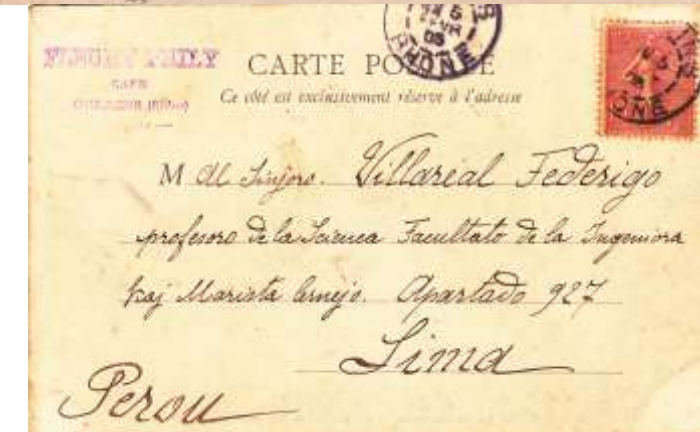 FLEURY PHILY
CAFÉ
CARTE POSTALE
Ce côté est exclusivement réservé à l'adresse
RHONE
M al Sinjoro. Villareal Federigo
profesoro de la Scienca Facultato de la Ingeniora
kaj Marista lernejo. Apartado 927
Lima
Perou